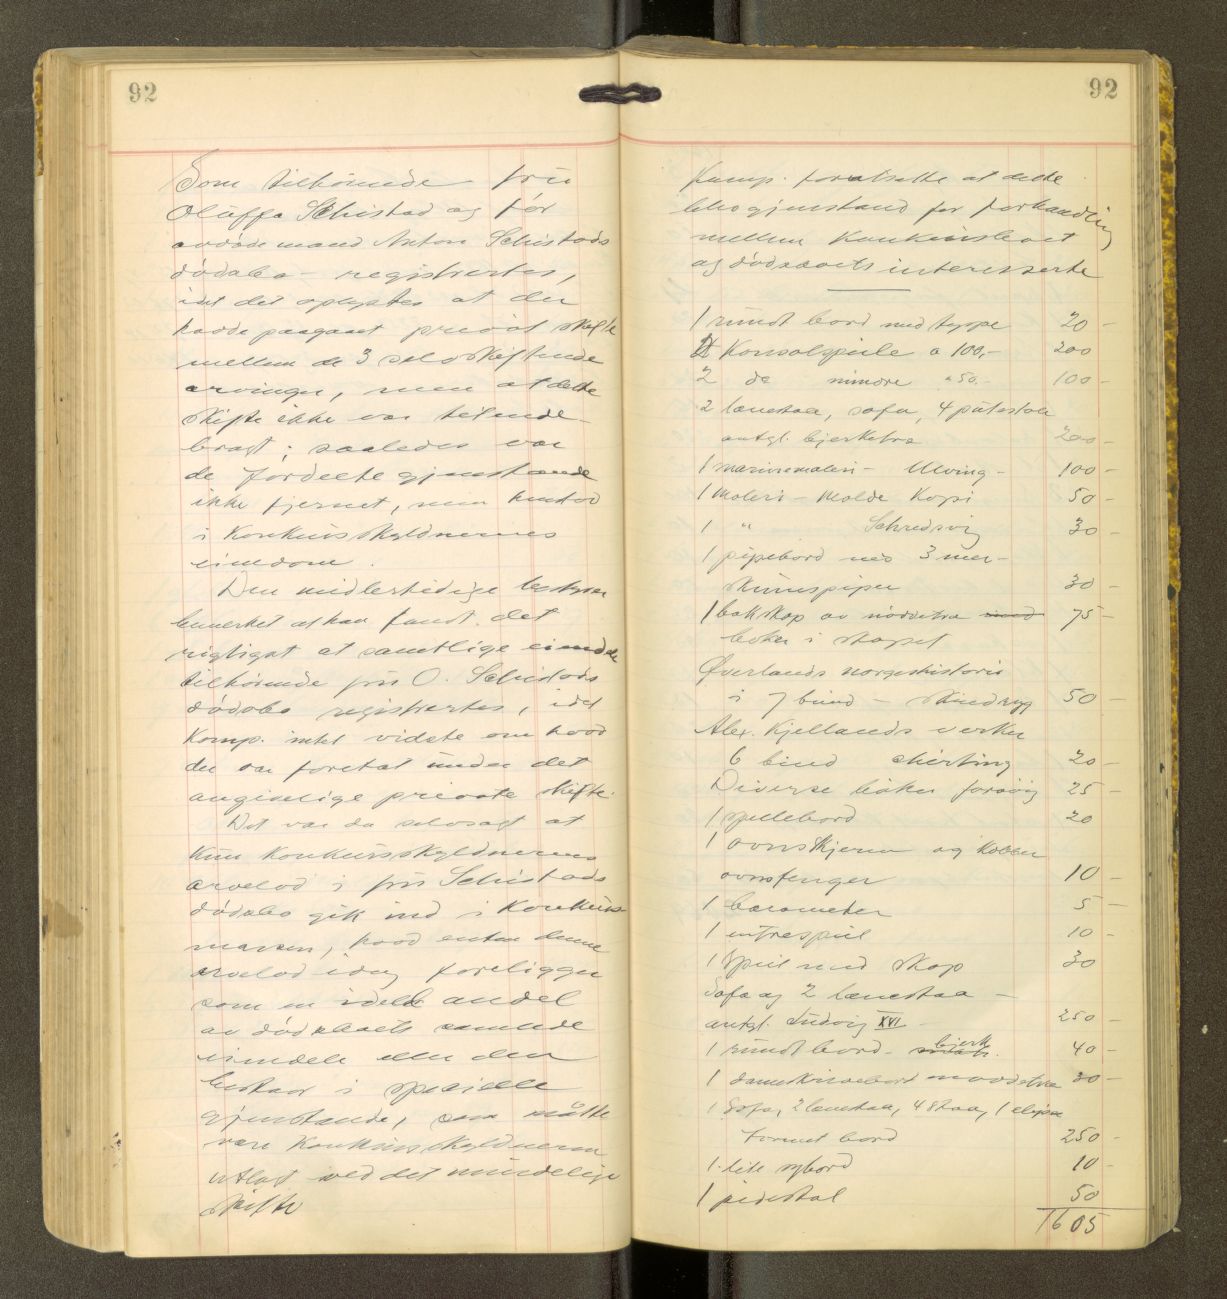 92
Som tilhørende fru
Oluffa Schistad og før
avdøde mand Anton Schistads
dødsbo – registrertes,
idet det oplystes at der
havde paagaaet privat skifte
mellem de 3 selvskiftende
arvinger, men at dette
skifte ikke var tilende-
bragt; saaledes var
de fordeelte gjenstande
ikke fjernet, men henstod
i Konkursskyldnernes
eiendom.
Den midlertidige bestyrer
bemerket at han fandt det
rigtigst at samtlige eiendele
tilhørende fru O. Schistads
dødsbo registrertes, idet
Komp. intet vidste om hvad
der var foretat under det
angivelige private skifte.
Det var da selvsagt at
kun Konkursskyldnernes
arvelod i fru Schistads
dødsbo gik ind i Konkurs-
massen, hvad enten denne
arvelod idag foreligger
som en ideel andel
av dødsboets samlede
eiendele eller den
bestaar i specielle
gjenstande, som måtte
være Konkursskyldneren
utlagt ved det mindelige
skifte
92
Komp. forutsatte at dette
blev gjenstand for forhandling
mellem Konkursboet
og dødsboets interesserte
1 rundt bord med teppe 20 –
2 Konsolspeile a 100,– 200
2 do mindre " 50.– 100 –
2 lænestoler, sofa, 4
antgl. bjerketræ 200 –
1 marinemaleri – Ulving – 100 –
1 maleri – Molde Kopi 50 –
1 " Schredsvig 30 –
1 pipebord med 3 mer-
skumspiper 30 –
1 bokskap av nøddetræ med 75 –
bøker i skapet
Øverlands norgeshistorie
i 7 bind – skindryg 50 –
Alex. Kjellands verker
6 bind shirting 20 –
Diverse bøker forøvrig 25 –
1 spillebord 20
1 ovnskjerm og Kobber
ovnsfenger 10 –
1 barometer 5 –
1 entrespeil 10 –
1 speil med skap 30
Sofa og 2 lænestoler –
antgl. Ludvig XVI – 250 –
1 rundt bord – bjerk 40 –
1 dameskrivebord nøddetræ 30 –
1 Sofa, 2 lænestoler, 4 stoler, 1 elipse
formet bord 250 –
1 lite sybord 10 –
1 pidestal 50
1605